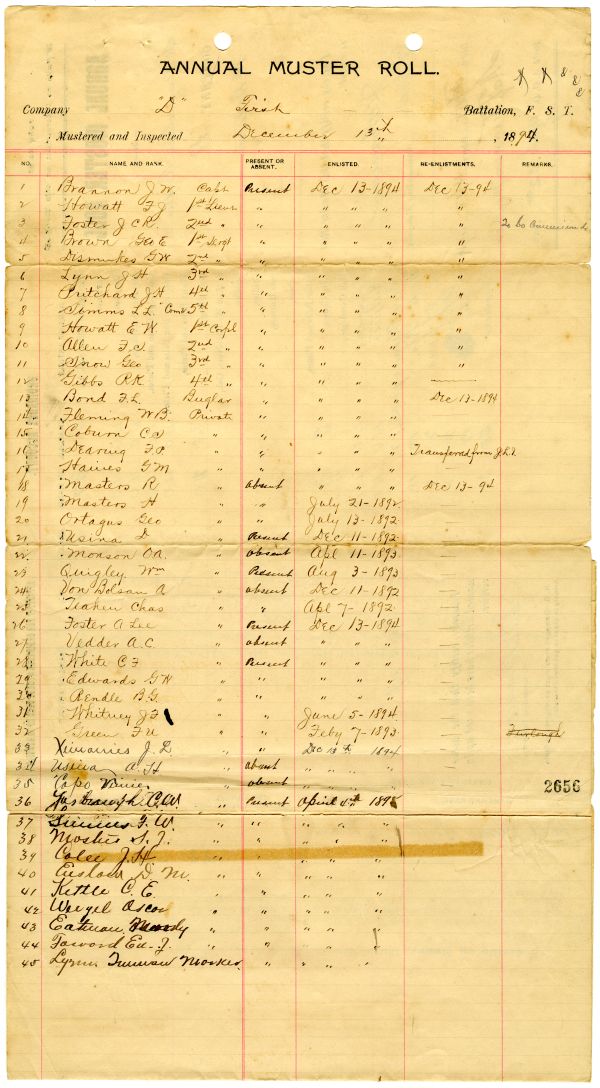 ANNUAL MUSTER ROLL.
Company "D" First Battalion, F. S. T.
Mustered and Inspected December 13th, 1894.
NO. NAME AND RANK. PRESENT OR ABSENT. ENLISTED. RE-ENLISTMENTS. REMARKS.
1 Brannon J. W. Capt Present Dec 13-1894 Dec 13-94
2 Howatt F J 1st Lieut " " " " "
3 Foster J C R. 2nd " " " " " " To be
4 Brown Geo E 1st Sergt " " " " "
5 Dismukes G W 2nd " " " " " "
6 Lynn J H 3rd " " " " " "
7 Pritchard J H 4th " " " " " "
8 Simms L L. 5th " " " " " "
9 Howatt E W 1st Corpl " " " " "
10 Allen F. J 2nd " " " " " "
11 Snow Geo 3rd " " " " " "
12 Gibbs R K 4th " " " " "
13 Bond F. L. Buglar " " " " Dec 13-1894
14 Fleming W B. Private " " " "
15 Coburn " " " " "
16 Dearing F. " " " " " Transferred from
17 Haines G M " " " " "
18 Masters R " absent " " " Dec 13-94
19 Masters H " " July 21-1892
20 Ortagus Geo " " July 13-1892
21 Usina D " Present Dec 11-1892
22 Monson O A. " absent Apl 11-1893
23 Quigley Wm " Present Aug 3-1893
24 Von Bolsan A " absent Dec 11-1892
25 Chas " " Apl 7-1892
26 Foster A Lee " Present Dec 13-1894
27 Vedder A. C. " absent " " "
28 White C F " Present " " "
29 Edwards G W " " " " "
30 Rendle B. G. " " " " "
31 Whitney J F " " June 5-1894
32 Green F U " " Feby 7-1893 Furlough
33 Ximanies J. L " " Dec 13th 1894
34 Usina A. H " absent " " "
35 Capo " absent " " "
36 C. W. " Present April 1895
37 F. W. " " " " "
38 S. J. " " " " "
39 Colee J. H " " " " "
40 D M. " " " " "
41 Kettle C. E. " " " " "
42 Weigel Oscar " " " " "
43 Eatman " " " " "
44 Ed. J. " " " " "
45 Lynn Truman " " " "
2656